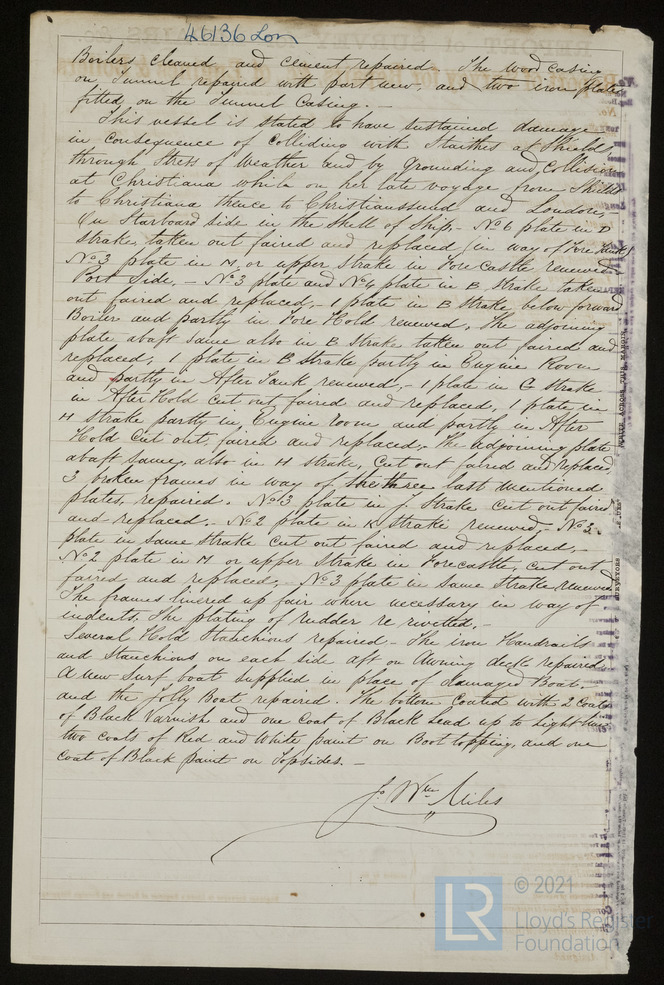 46136 Lon
Boilers cleaned and cement repaired The wood casing
on Tunnel repaired with part new, and two iron plates
fitted on the Tunnel Casing. -
This vessel is stated to have sustained damage
in consequence of Colliding with Staithes at Shields,
through stress of Weather and by grounding and Collision
at Christiana while on her late voyage from Shields
to Christiana thence to Christianssund and London,-
On Starboard side in the Shell of Ship,- No 6 plate in D
strake, taken out faired and replaced (in way of Fore Tank)
No 3 plate in M, or upper strake in Forecastle renewed
Port Side. - No 3 plate and No 4 plate in B strake taken
out faired and replaced,- 1 plate in B strake below forward
Boiler and partly in Fore Hold renewed, the adjoining
plate abaft same also in B strake taken out faired and
replaced, 1 plate in B strake partly in Engine Room
and partly in After Tank renewed,- 1 plate in G strake
in After Hold cut out faired and replaced, 1 plate in
H strake partly in Engine room and partly in After
Hold cut out, faired and replaced,- The adjoining plate
abaft same, also in H strake, Cut out faired and replaced
3 broken frames in way of the three last mentioned
plates, repaired. No 3 plate in J. Strake cut out faired
and replaced. - No 2 plate in K strake renewed,- No 3
plate in same strake cut out faired and replaced,-
No 2 plate in M or upper strake in Forecastle, cut out
faired and replaced,- No 3 plate in same strake, renewed
The frames linered up fair where necessary in way of
indents, The plating of rudder re rivetted,-
Several Hold Stanchions repaired - The iron Handrails
and Stanchions on each side aft on Awning deck repaired,
A new Surf boat supplied in place of damaged Boat,-
and the Jolly Boat repaired. The bottom Coated with 2 Coats
of Black Varnish and one Coat of Black Lead up to light line
two coats of Red and White paint on Boot topping, and one
coat of Black paint on Topsides. -
Jo Wm Miles
© 2021
Lloyd's Register
Foundation